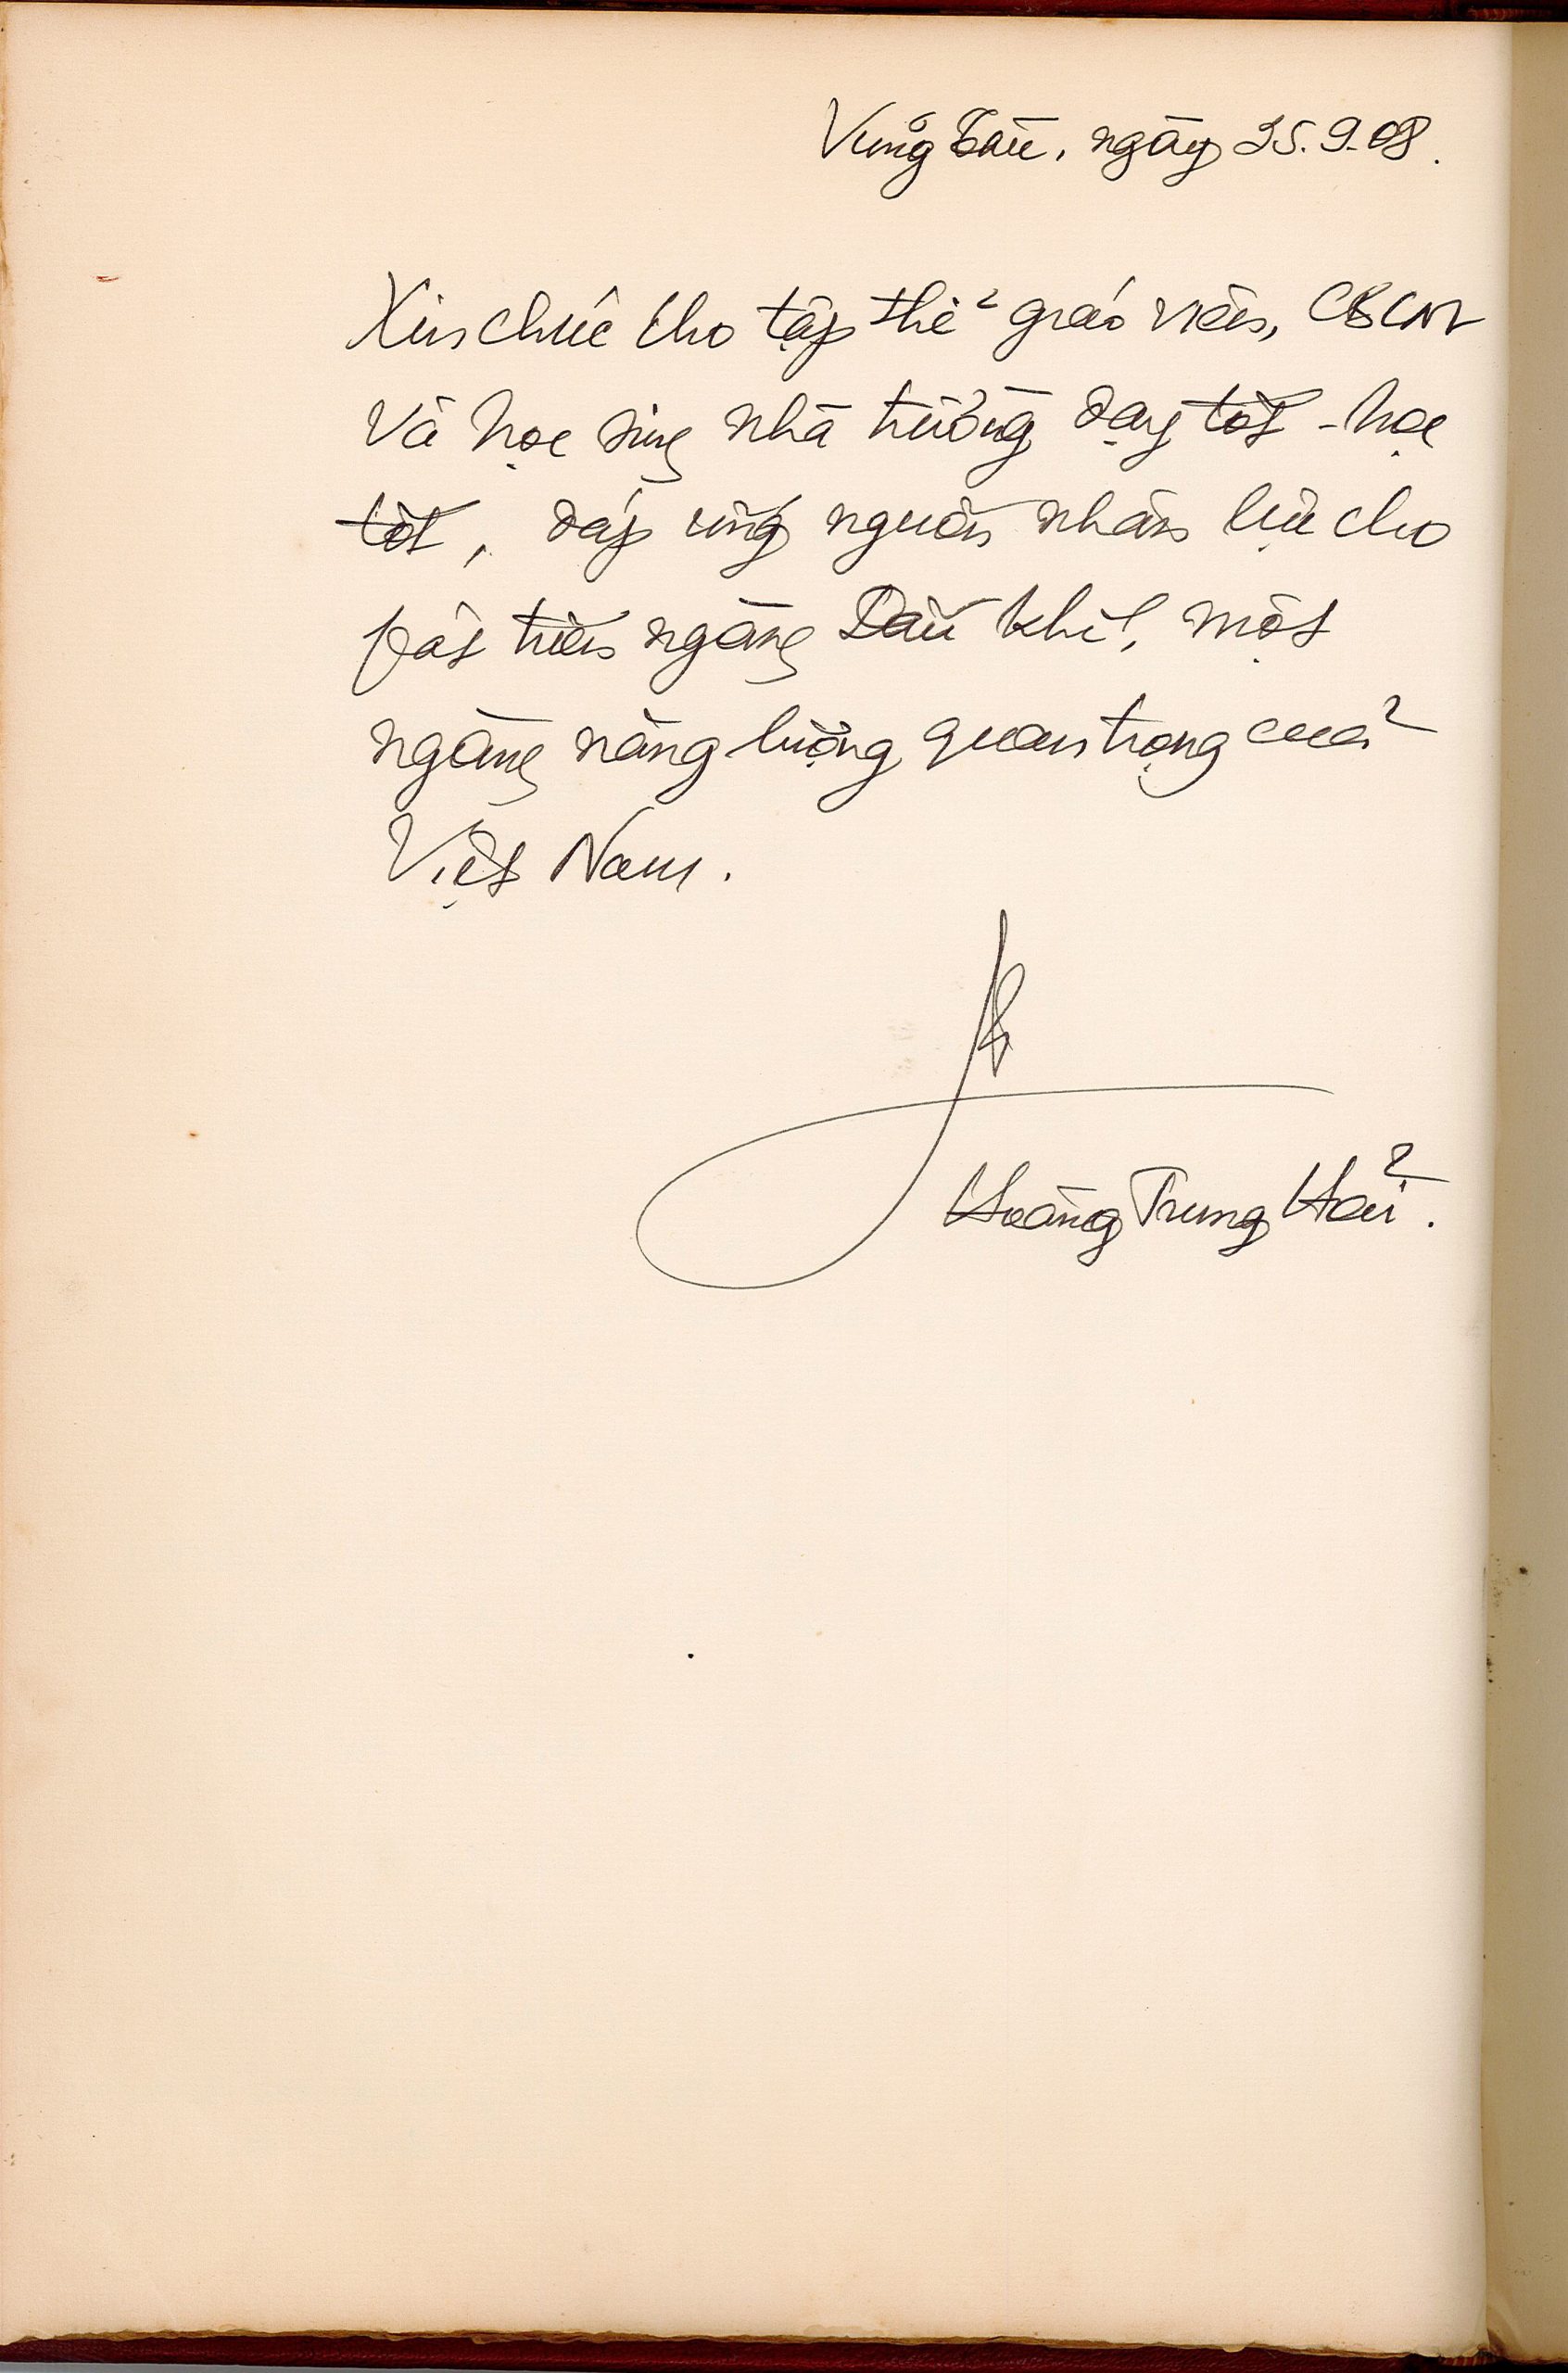 Vũng Tàu, ngày 25.9.08.
Xin chúc cho tập thể giáo viên, CBCNV
và học sinh nhà trường dạy tốt - học
tốt, đáp ứng nguồn nhân lực cho
phát triển ngành Dầu khí, một
ngành năng lượng quan trọng của
Việt Nam.
Hoàng Trung Hải.